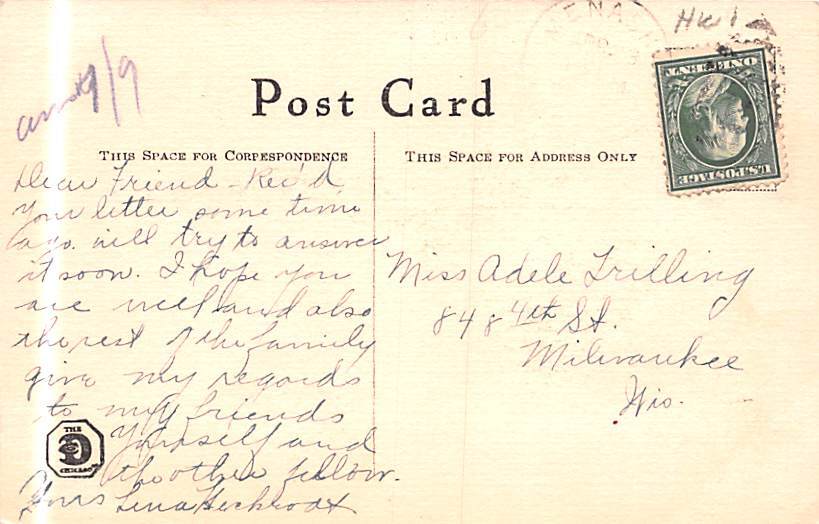 MENASH
Post Card
THIS SPACE FOR CORRESPONDENCE
THIS SPACE FOR ADDRESS ONLY
ONE CENT
U.S. POSTAGE
Dear Friend - Rec'd
your letter some time
ago. will try to answer
it soon. I hope you
are well and also
the rest of the family
give my regards
to my friends
yourself and
the other fellow.
Yours Lena Heckrodt
Miss Adele Trilling
848 4th St.
Milwaukee
Wis.
THE
CHICAGO